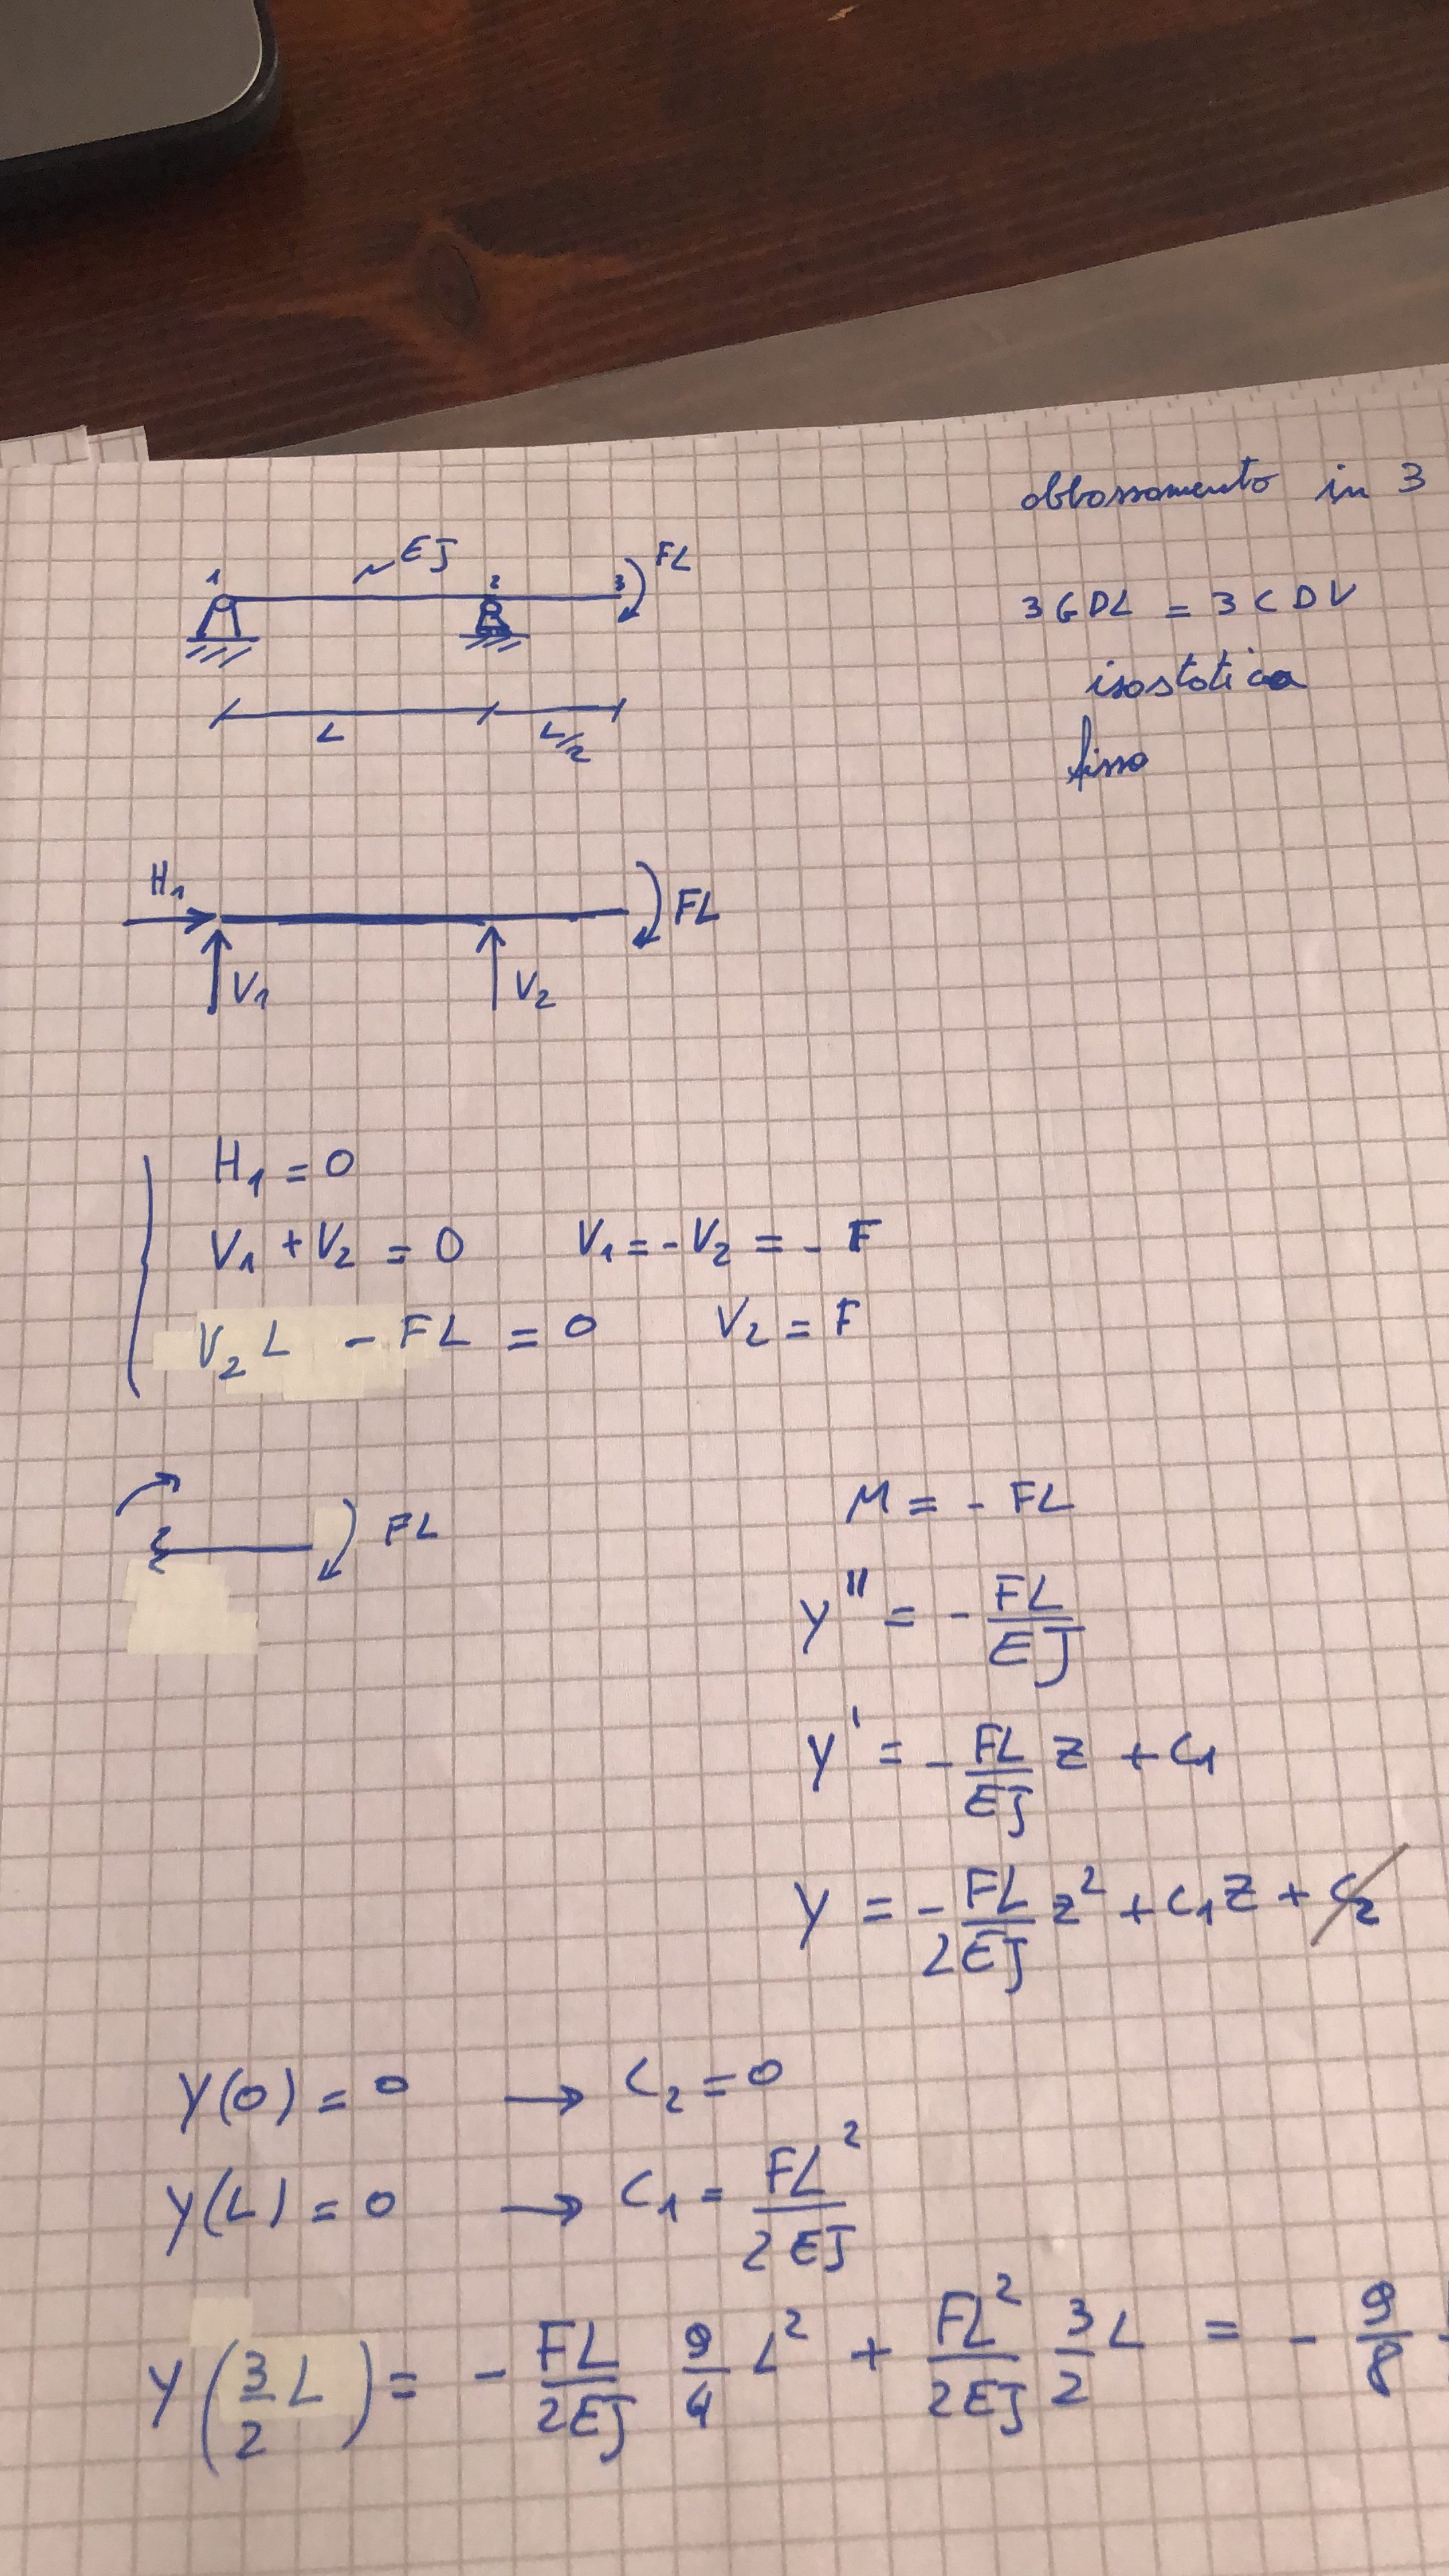 abbassamento in 3
EJ
1 2 3 FL
3 GDL = 3 CDV
isostatica
L L/2
fisso
H₁
FL
V₁ V₂
H₁ = 0
V₁ + V₂ = 0 V₁ = - V₂ = - F
V₂ L - FL = 0 V₂ = F
FL
M = - FL
y'' = - FL/EJ
y' = - FL/EJ z + C₁
y = - FL/2EJ z² + C₁ z + C₂
y(0) = 0 → C₂ = 0
y(L) = 0 → C₁ = FL²/2EJ
y(3/2 L) = - FL/2EJ 9/4 L² + FL²/2EJ 3/2 L = - 9/8